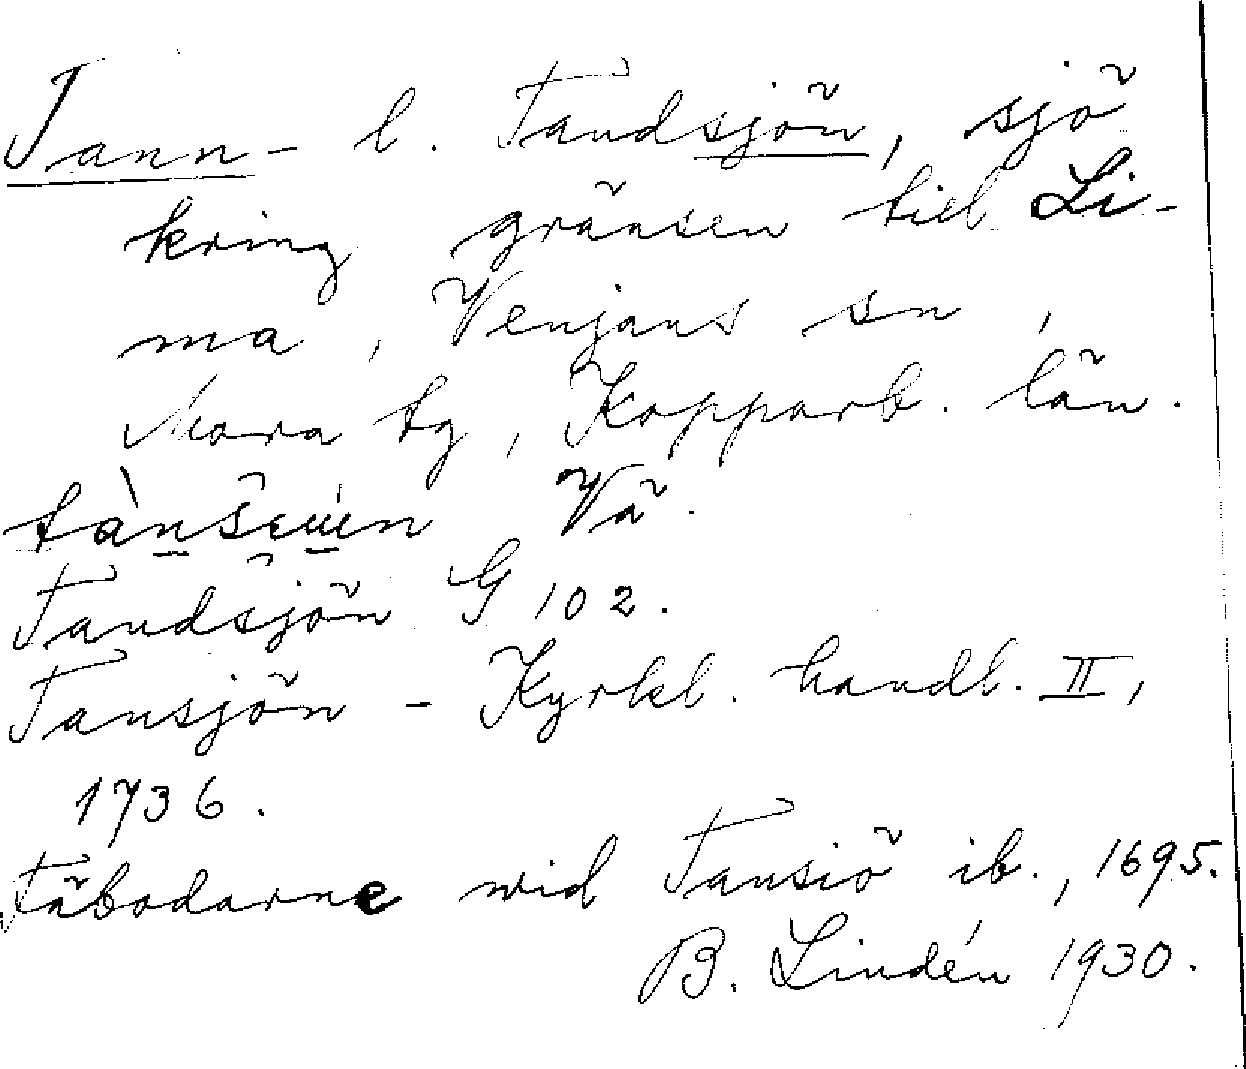 Tann- l. Tandsjön, sjö
kring gränsen till Li-
ma, Venjans sn,
Mora tg, Kopparb. län.
Vä.
Tandsjön G 102.
Tansjön - Kyrkl. handl. II,
1736.
Fäbodarne wid Tansiö ib., 1695.
B. Lindén 1930.